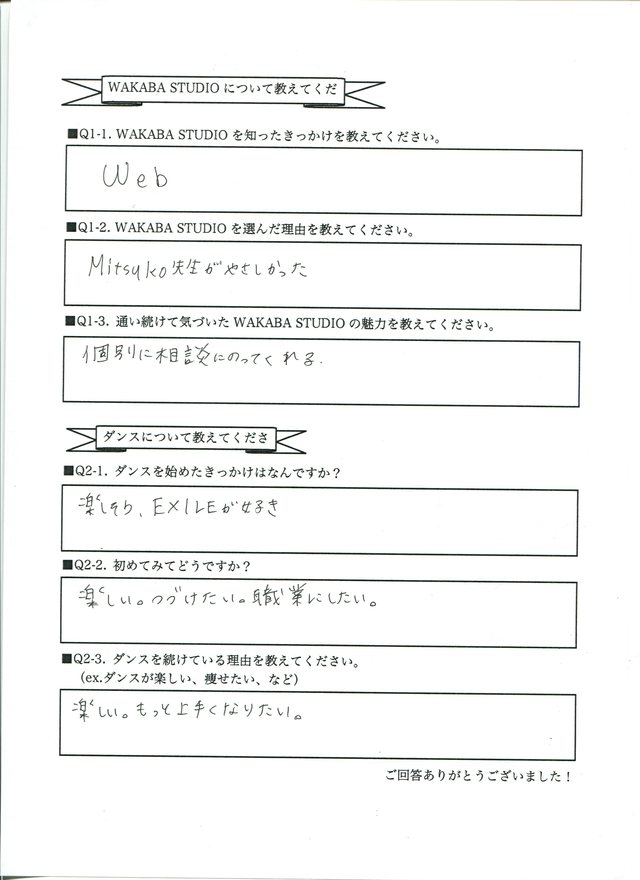 WAKABA STUDIO について教えてくだ
■Q1-1. WAKABA STUDIO を知ったきっかけを教えてください。
Web
■Q1-2. WAKABA STUDIO を選んだ理由を教えてください。
Mitsuko先生がやさしかった
■Q1-3. 通い続けて気づいた WAKABA STUDIO の魅力を教えてください。
個別に相談にのってくれる.
ダンスについて教えてくださ
■Q2-1. ダンスを始めたきっかけはなんですか？
楽しそう、EXILEが好き
■Q2-2. 初めてみてどうですか？
楽しい。つづけたい。職業にしたい。
■Q2-3. ダンスを続けている理由を教えてください。
（ex.ダンスが楽しい、痩せたい、など）
楽しい。もっと上手くなりたい。
ご回答ありがとうございました！